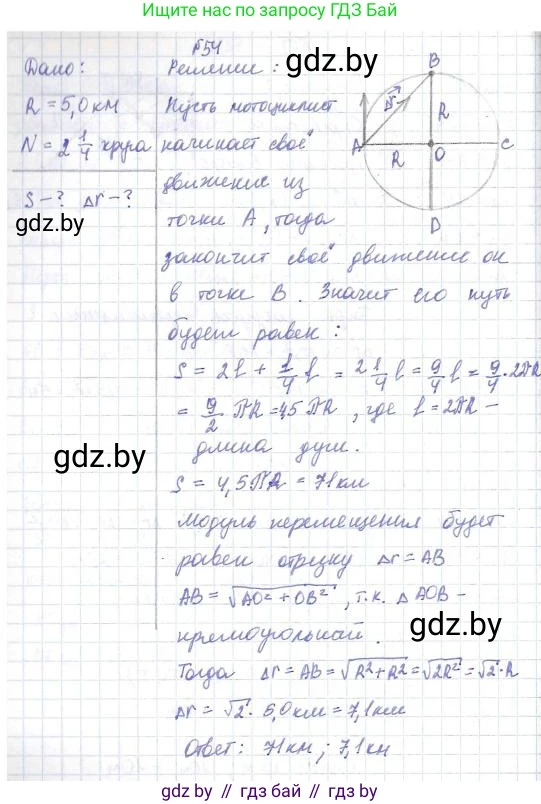 Ищите нас по запросу ГДЗ Бай
№54
Дано:
R = 5,0 км
N = 2 1/4 круга
S - ? Δr - ?
gdz.by
Решение:
gdz.by
Пусть мотоциклист
начинает своё
движение из
точки A, тогда
B
R
A
R
O
C
D
закончит своё движение он
в точке B. Значит его путь
будет равен:
S = 2l + 1/4 l = 2 1/4 l = 9/4 l = 9/4 · 2πR
= 9/2 πR = 4,5 πR, где l = 2πR -
длина дуги.
gdz.by
S = 4,5πR = 71 км
Модуль перемещения будет
равен отрезку Δr = AB
AB = √AO² + OB², т.к. Δ AOB -
прямоугольный.
gdz.by
Тогда Δr = AB = √R² + R² = √2R² = √2 · R
Δr = √2 · 5,0 км = 7,1 км
Ответ: 71 км; 7,1 км
gdz.by // гдз бай // gdz.by